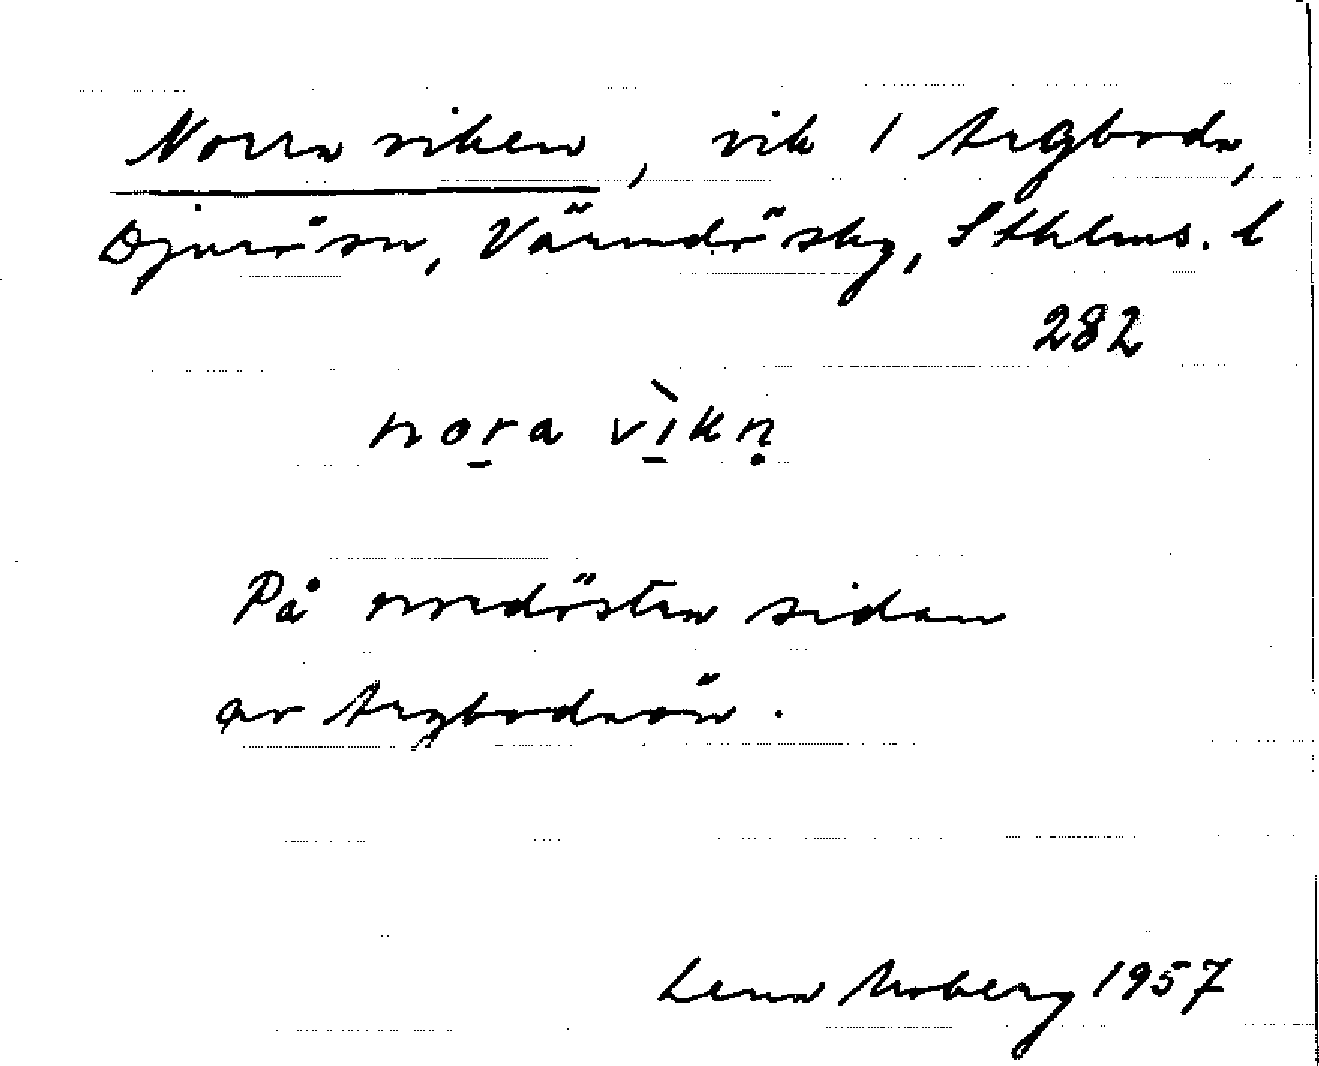 Norra viken, vik / Argboda,
Djurö sn, Värmdö sky, Sthlms. l
282
nora vìkn̥
På nordöstra sidan
av Argbodaön.
Lena Moberg 1957